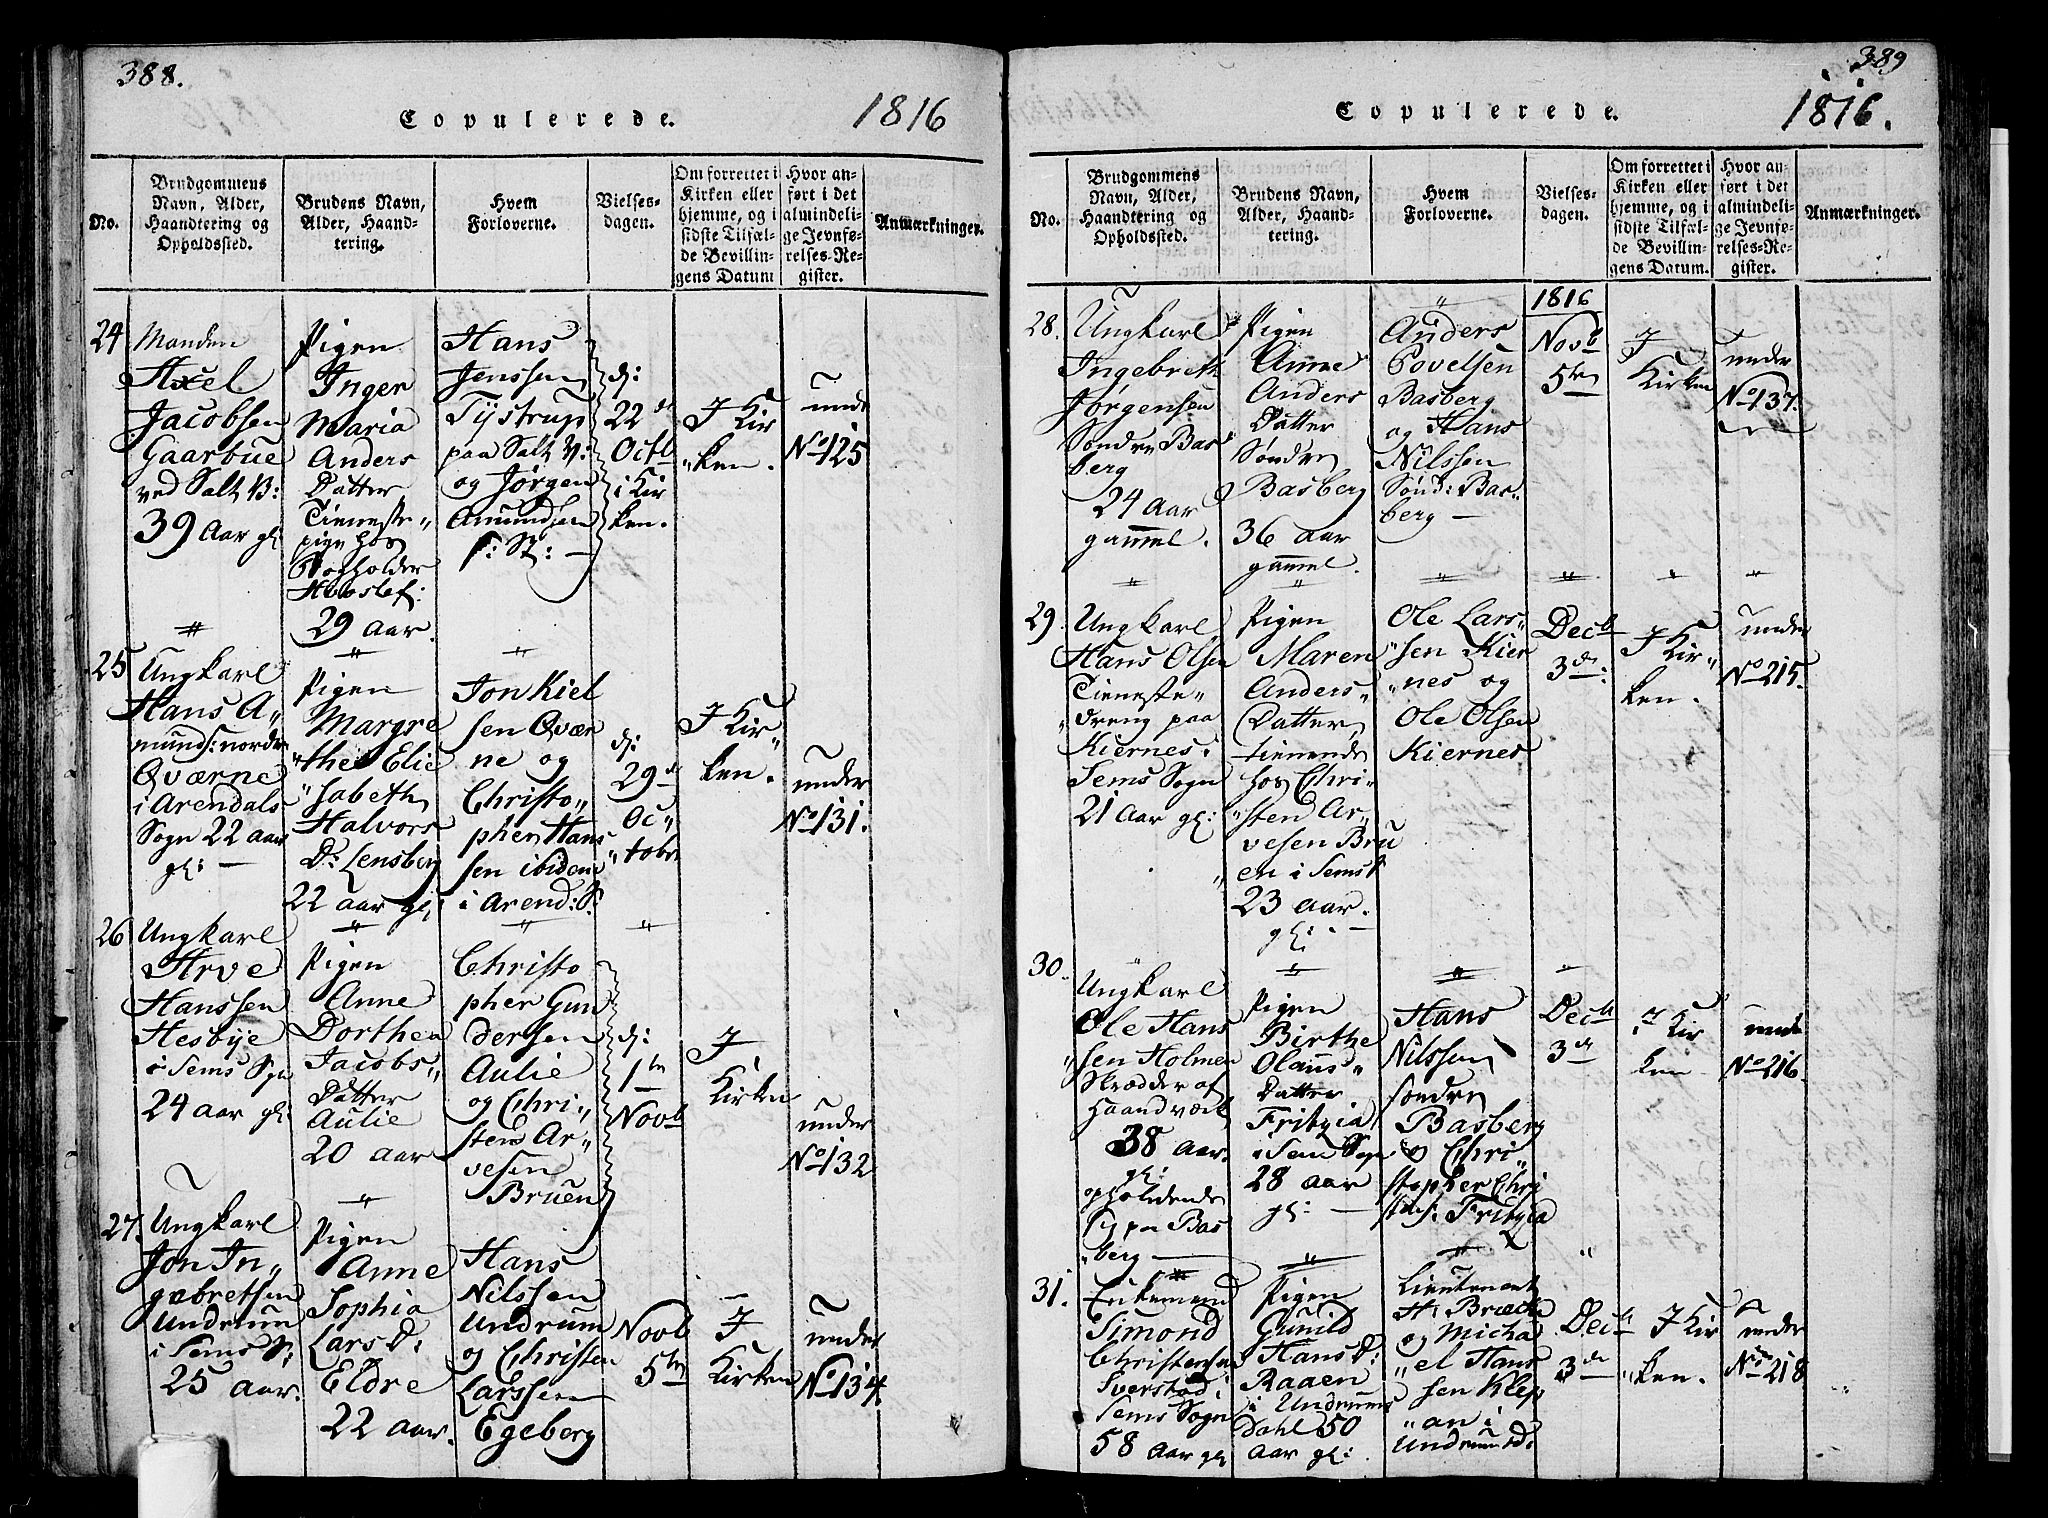 388.
Copulerede.
1816
No.
Brudgommens
Navn, Alder,
Haandtering og
Opholdssted.
Brudens Navn,
Alder, Haand-
tering.
Hvem
Forloverne.
Vielses-
dagen.
Om forrettet i
Kirken eller
hjemme, og i
sidste Tilfæl-
de Bevillin-
gens Datum
Hvor an-
ført i det
almindeli-
ge Jevnfø-
relses-Re-
gister.
Anmærkninger.
24
Manden
Axel
Jacobsen
Gaarbue
ved Salt V:
39 Aar gl:
Pigen
Inger
Maria
Anders
Datter
Tieneste-
pige hos
Bogholder
29 Aar.
Hans
Jenssen
Tystrup
paa Salt V:
og Jørgen
Amundsen
d:
22 d
Octb
i Kir
ken.
I Kir
"ken.
under
No 125
25
Ungkarl
Hans A„
munds: nordre
Qværne
i Arendals
Sogn 22 aar
gl: —
Pigen
Margre
"the Elie
"sabeth
Halvors
D: Lensberg
22 aar gl:
Jon Kiel
sen Qvær
ne og
Christo„
pher Hans
sen ibidem
i Arend: S:
d:
29 d
Oc„
"tobr
I Kir„
ken.
under
No 131.
26
Ungkarl
Arve
Hanssen
Hesbye
i Sems Sgn
24 aar gl:
Pigen
Anne
Dorthea
Jacobs„
Datter
Aulie
20 aar
Christo
pher Gun
dersen
Aulie
og Chri„
sten Ar„
vesen
Bruen
d:
1ten
Novb
I
Kirken
under
No 132
27.
Ungkarl
Jon In„
gebretsen
Undrum
i Sems S:
25 aar.
Pigen
Anne
Sophia
Lars D:
Eldre
22 aar.
Hans
Nilssen
Undrum
og Christen
Larssen
Egeberg
Novb
5ten
I
Kirken
under
No 134.
389
Copulerede.
1816.
No.
Brudgommens
Navn, Alder,
Haandtering og
Opholdssted.
Brudens Navn,
Alder, Haand-
tering.
Hvem
Forloverne.
Vielses-
dagen.
Om forrettet i
Kirken eller
hjemme, og i
sidste Tilfæl-
de Bevillin-
gens Datum.
Hvor an-
ført i det
almindeli-
ge Jevnfø-
relses-Re-
gister.
Anmærkninger.
28.
Ungkarl
Ingebreth
Jørgensen
Søndre Bas
berg
24 Aar
gammel.
Pigen
Anne
Anders
Datter
Søndre
Basberg
36 aar
gammel.
Anders
Povelsen
Basberg
og Hans
Nilssen
Sønd: Bas„
berg —
1816
Novb
5ten
I
Kirken
under
No 137.
29
Ungkarl
Hans Olsen
Tieneste„
"dreng paa
Kiernes i
Sems Sogn
21 Aar gl:
Pigen
Maren
Anders„
Datter
tienende
hos Chri„
sten Ar„
vesen Bru
en i Sems S
23 aar.
gl: —
Ole Lars„
"sen Kier
"nes og
Ole Olsen
Kiernes
Decb
3 de:
I Kir„
ken.
under
No 215.
30.
Ungkarl
Ole Hans
"sen Holmen
Skrædder af
Haandværk
38 aar.
gl:
opholdende
sig paa Bas
"berg —
Pigen
Birthe
Olaus„
Datter
Fritzia
i Sem Sogn
28 aar
gl: —
Hans
Nilssen
søndre
Basberg
og Chri„
stopher Chri
stens: Fritzia
Decb
3 de
i Kir
ken
under
No 216.
31.
Enkemand
Simond
Christensen
Sverstad i
Sems Sogn
58 Aar gl
Pigen
Gunild
Hans D:
Raaen
i Undrums
dahl 50
aar gl:
Lieutenant
og Micha
"el Hans
sen Klep
"an i
Undrumsd:
Decb
3 de
I Kir
"ken.
under
No 218